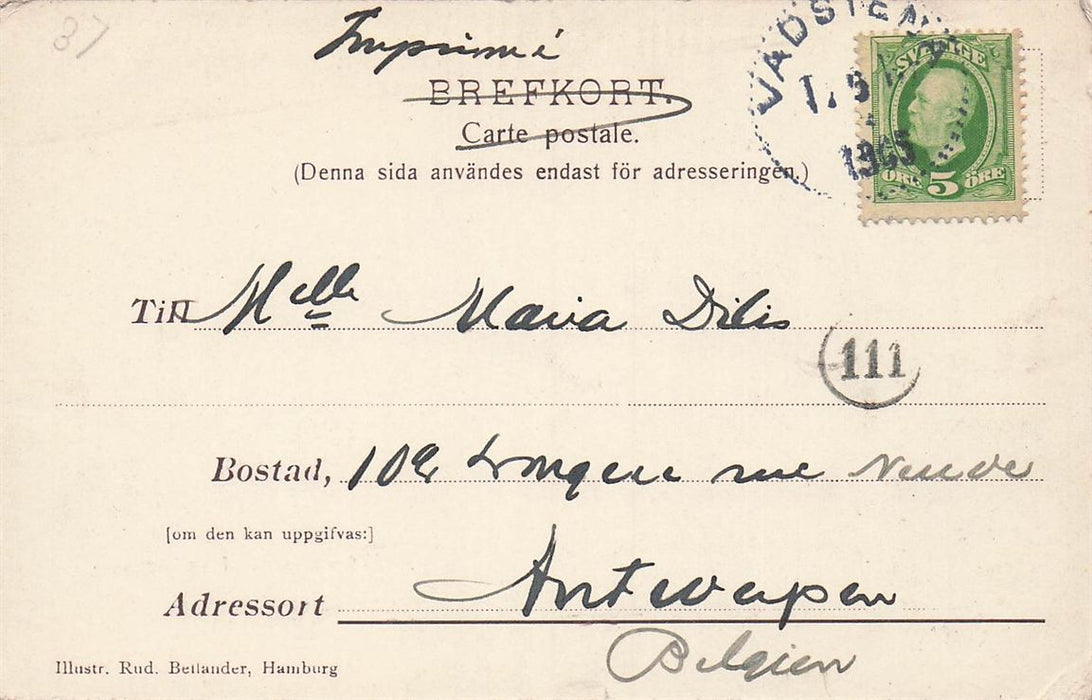 87
Imprimé
BREFKORT.
Carte postale.
(Denna sida användes endast för adresseringen.)
VADSTENA
1905
SVERIGE
ÖRE 5 ÖRE
Till Melle Maria Dilis
111
Bostad, 108 rue
[om den kan uppgifvas:]
Adressort Antwerpen
Belgien
Illustr. Rud. Beilander, Hamburg